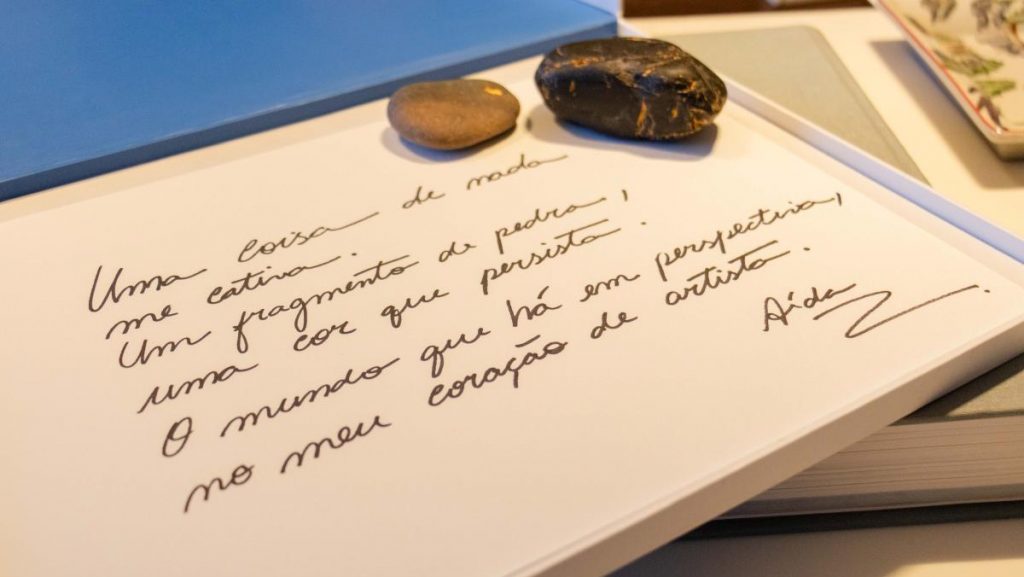 Uma coisa de nada
me cativa.
Um fragmento de pedra,
uma cor que persista.
O mundo que há em perspectiva,
no meu coração de artista.
Aída